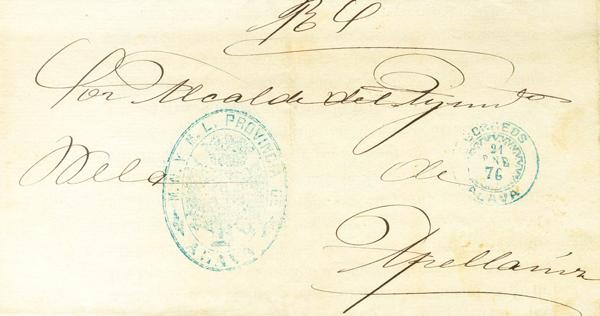 Sor Alcalde del Ayunto
de
Apellaniz
M. N. Y M. L. PROVINCIA DE
ALAVA
CORREOS
21
ENE
76
ALAVA